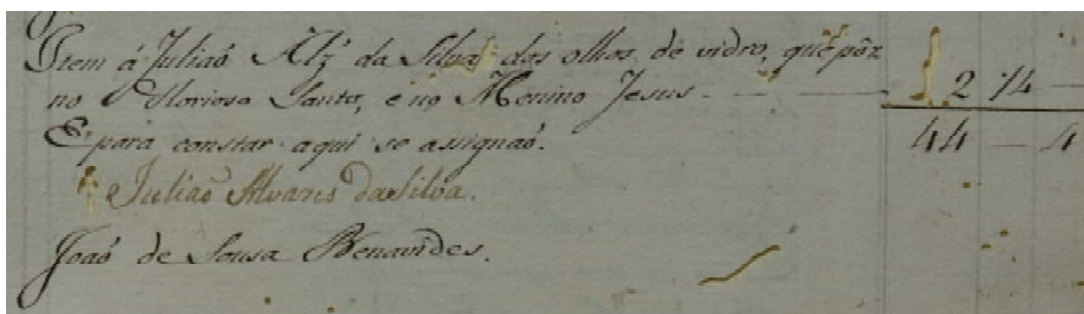 Item á Juliaõ Alz' da Silva, dos olhos de vidro, que pôz
no Glorioso Santo, e no Menino Jesus - 2 14 -
E para constar aqui se assignaõ. 44 - 4
Juliaõ Alvares da Silva.
Joaõ de Sousa Benavides.